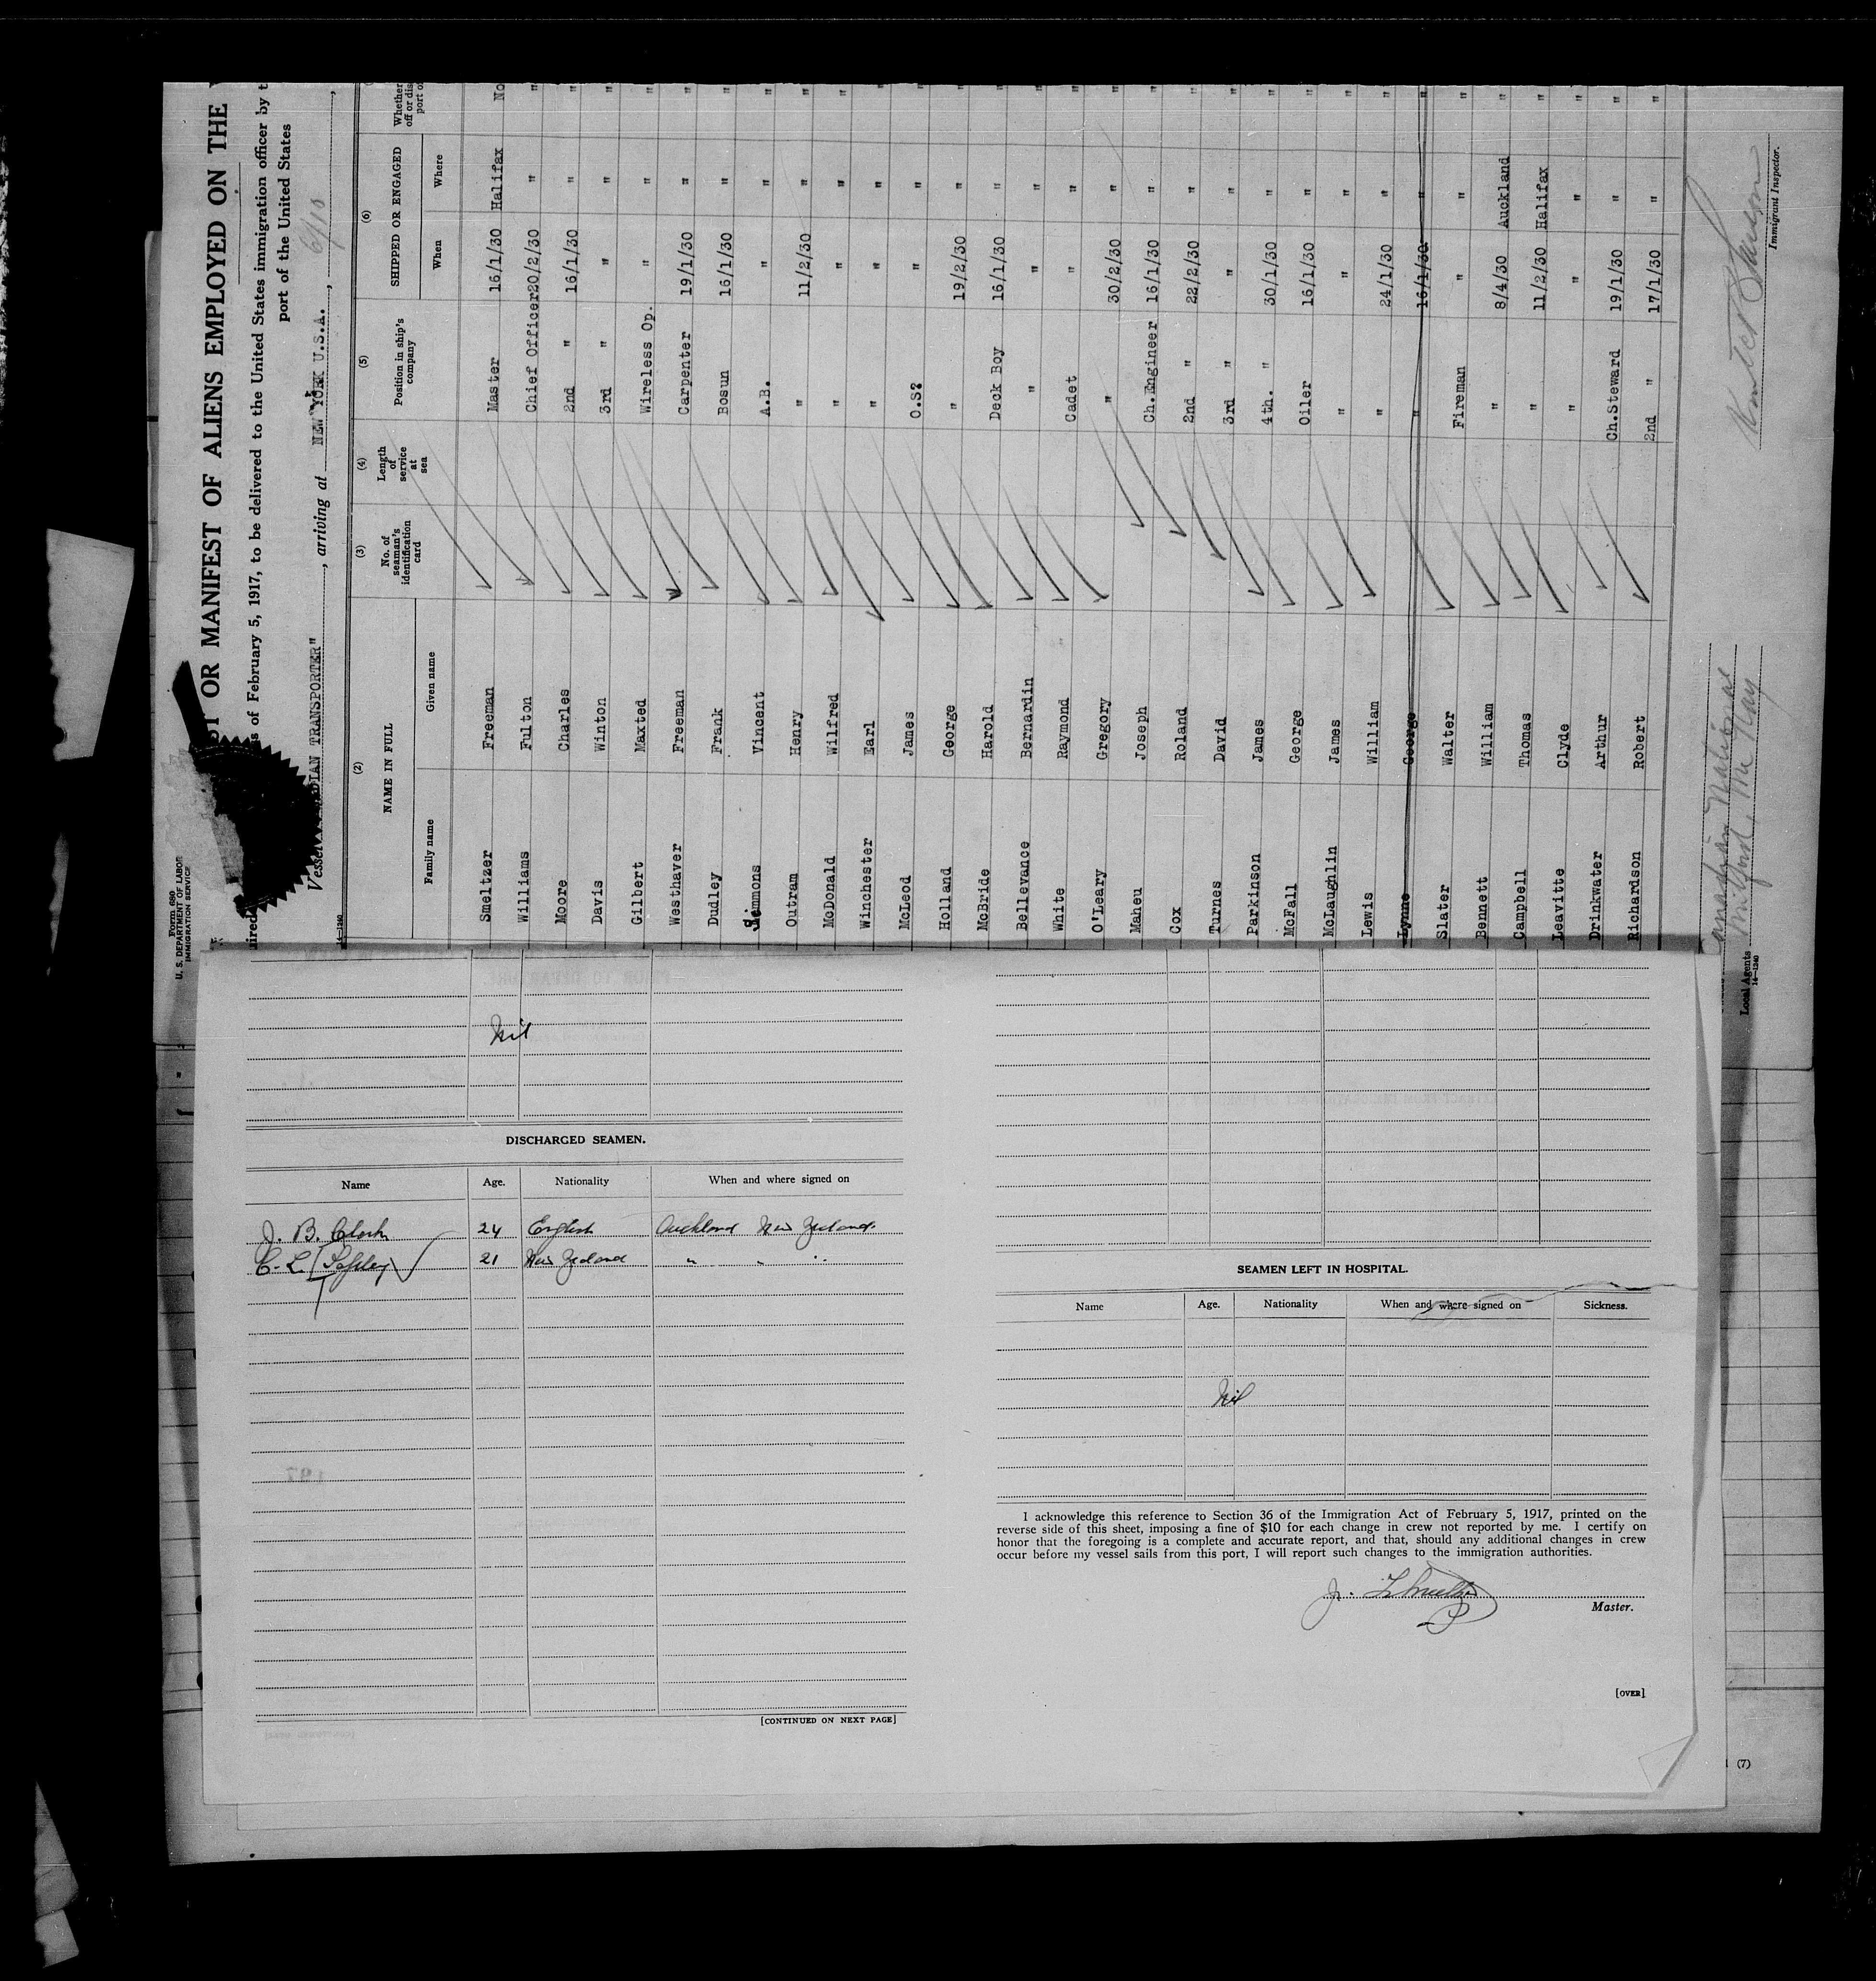 Form 680
U. S. DEPARTMENT OF LABOR
IMMIGRATION SERVICE
OR MANIFEST OF ALIENS EMPLOYED ON THE
of February 5, 1917, to be delivered to the United States immigration officer by
port of the United States
Vessel TRANSPORTER", arriving at NEW YORK U.S.A.,
(2) (3) (4) (5) (6)
NAME IN FULL No. of seaman's identification card Length of service at sea Position in ship's company SHIPPED OR ENGAGED Whether
Family name Given name When Where
Smeltzer Freeman Master 16/1/30 Halifax No
Williams Fulton Chief Officer 20/2/30 " "
Moore Charles 2nd " 16/1/30 " "
Davis Winton 3rd " " " "
Gilbert Maxted Wireless Op. " " "
Westhaver Freeman Carpenter 19/1/30 " "
Dudley Frank Bosun 16/1/30 " "
Simmons Vincent A.B. " " "
Outram Henry " 11/2/30 " "
McDonald Wilfred " " " "
Winchester Earl " " " "
McLeod James O.S? " " "
Holland George " 19/2/30 " "
McBride Harold Deck Boy 16/1/30 " "
Bellevance Bernardin " " " "
White Raymond Cadet " " "
O'Leary Gregory " 30/2/30 " "
Maheu Joseph Ch.Engineer 16/1/30 " "
Cox Roland 2nd " 22/2/30 " "
Turnes David 3rd " " " "
Parkinson James 4th. " 30/1/30 " "
McFall George Oiler 16/1/30 " "
McLaughlin James " " " "
Lewis William " 24/1/30 " "
Lynne George " 16/1/30 " "
Slater Walter Fireman " " "
Bennett William " 8/4/30 Auckland "
Campbell Thomas " 11/2/30 Halifax "
Leavitte Clyde " " " "
Drinkwater Arthur Ch.Steward 19/1/30 " "
Richardson Robert 2nd " 17/1/30 " "
Immigrant Inspector.
National
Local Agents
14—1240
Nil
DISCHARGED SEAMEN.
Name Age. Nationality When and where signed on
J. B. Clark 24 English Auckland New Zealand.
C. L. 21 New Zealand " " "
[CONTINUED ON NEXT PAGE]
SEAMEN LEFT IN HOSPITAL.
Name Age. Nationality When and where signed on Sickness.
Nil
I acknowledge this reference to Section 36 of the Immigration Act of February 5, 1917, printed on the
reverse side of this sheet, imposing a fine of $10 for each change in crew not reported by me. I certify on
honor that the foregoing is a complete and accurate report, and that, should any additional changes in crew
occur before my vessel sails from this port, I will report such changes to the immigration authorities.
Master.
[OVER]
(7)